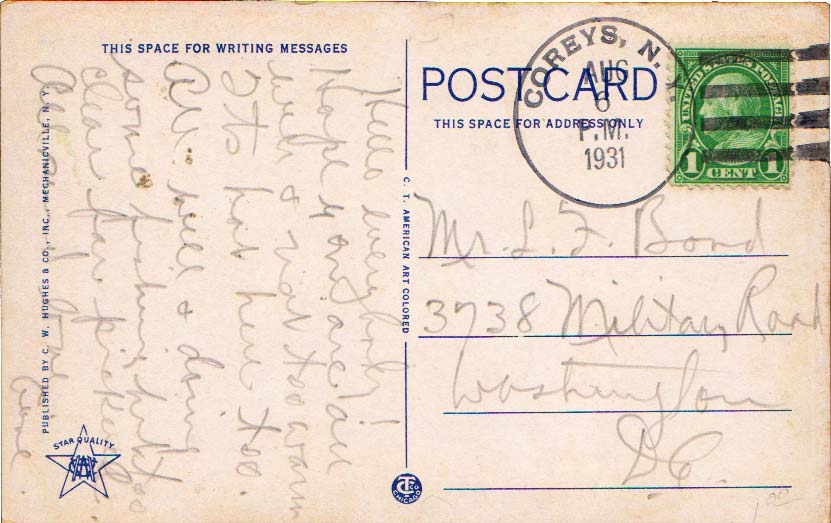 THIS SPACE FOR WRITING MESSAGES
Hello everybody!
Hope you are all
well & not too warm
Its hot here too.
All well & doing
some fishing but too
clear for pickerel.
PUBLISHED BY C. W. HUGHES & CO., INC., MECHANICVILLE, N. Y.
STAR QUALITY
C. T. AMERICAN ART COLORED
CHICAGO
POST CARD
THIS SPACE FOR ADDRESS ONLY
COREYS, N. Y.
AUG
6
P.M.
1931
UNITED STATES POSTAGE
1 CENT 1
Mr. L. F. Bond
3738 Military Road
Washington
D.C.
1.00